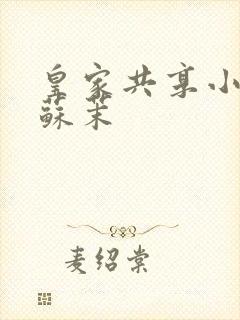 皇家共享小
蘇茉
麦绍棠